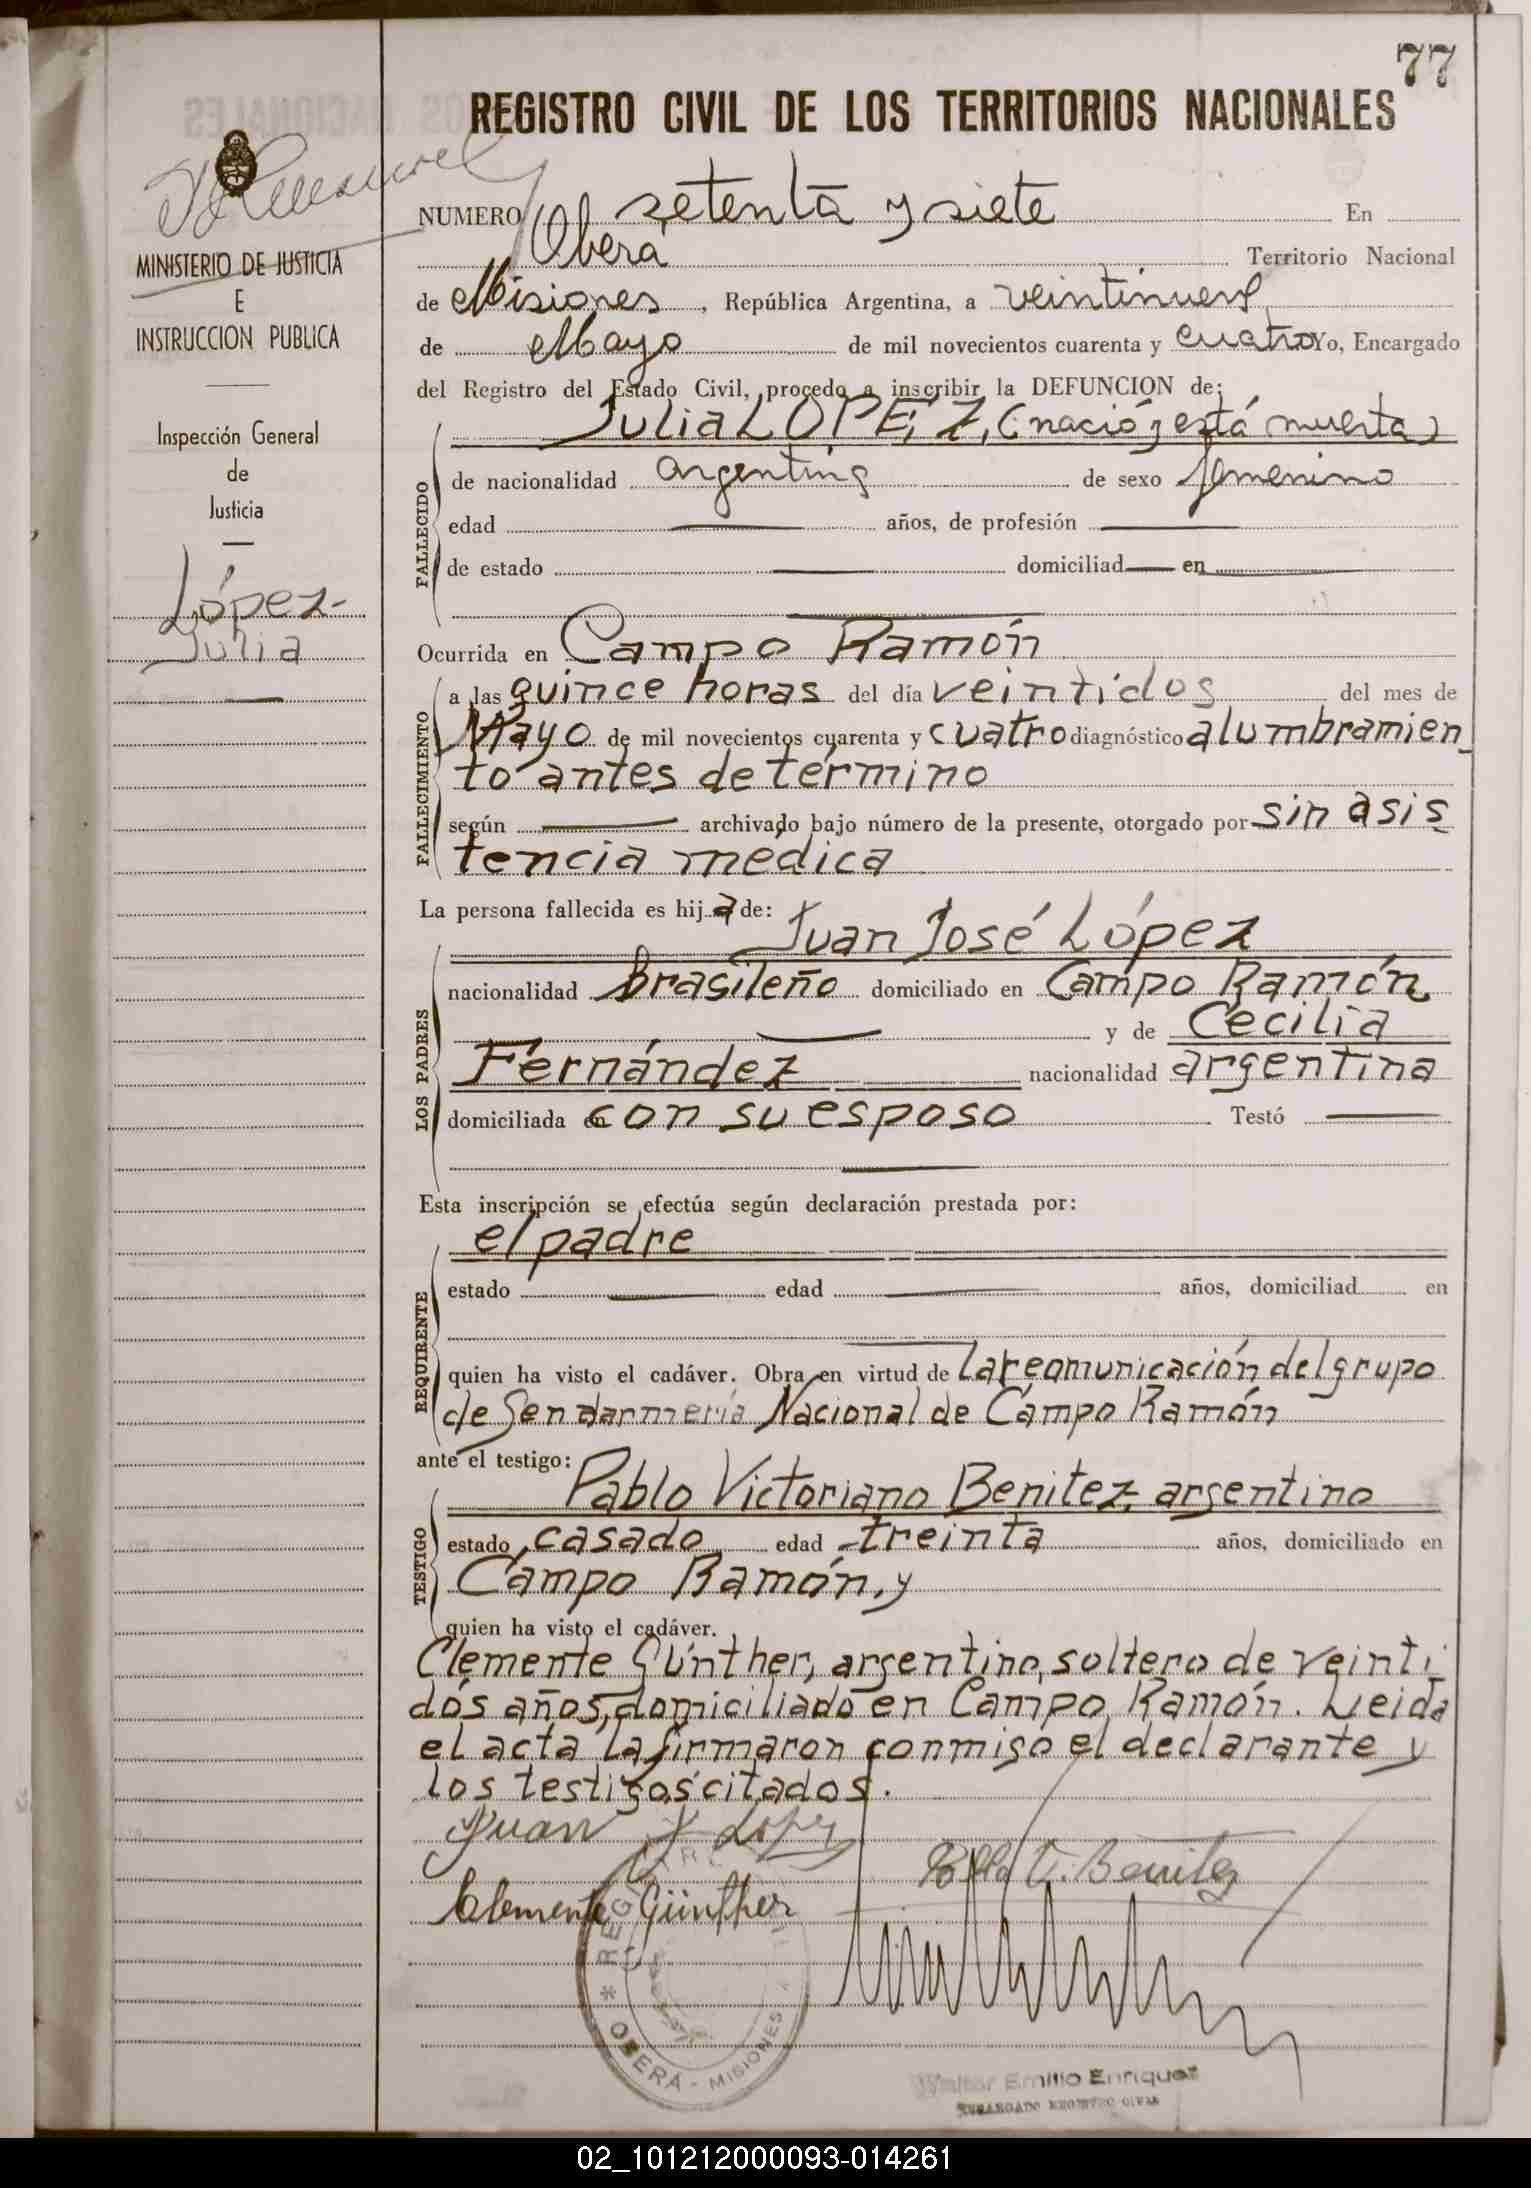 77
REGISTRO CIVIL DE LOS TERRITORIOS NACIONALES
MINISTERIO DE JUSTICIA
E
INSTRUCCION PUBLICA
Inspección General
de
Justicia
López-
Julia
NUMERO setenta y siete En
Oberá Territorio Nacional
de Misiones, República Argentina, a veintinueve
de Mayo de mil novecientos cuarenta y cuatro Yo, Encargado
del Registro del Estado Civil, procedo a inscribir la DEFUNCION de:
FALLECIDO
Julia LOPEZ, (nació y está muerta)
de nacionalidad argentina de sexo femenino
edad años, de profesión
de estado domiciliad en
Ocurrida en Campo Ramón
FALLECIMIENTO
a las quince horas del día veintidos del mes de
Mayo de mil novecientos cuarenta y cuatro diagnóstico alumbramien
to antes de término
según archivado bajo número de la presente, otorgado por sin asis
tencia médica
La persona fallecida es hija de:
LOS PADRES
Juan José López
nacionalidad brasileño domiciliado en Campo Ramón
y de Cecilia
Fernández nacionalidad argentina
domiciliada con su esposo Testó
Esta inscripción se efectúa según declaración prestada por:
REQUIRENTE
el padre
estado edad años, domiciliad en
quien ha visto el cadáver. Obra en virtud de la comunicación del grupo
de Gendarmería Nacional de Campo Ramón
ante el testigo:
TESTIGO
Pablo Victoriano Benitez, argentino
estado casado edad treinta años, domiciliado en
Campo Ramón, y
quien ha visto el cadáver.
Clemente Günther, argentino, soltero de veinti
dós años, domiciliado en Campo Ramón. Leida
el acta la firmaron conmigo el declarante y
los testigos citados.
Juan J López
Pablo V. Benitez
Clemente Günther
OBERÁ - MISIONES
Walter Emilio Enriquez
ENCARGADO REGISTRO CIVIL
02_101212000093-014261